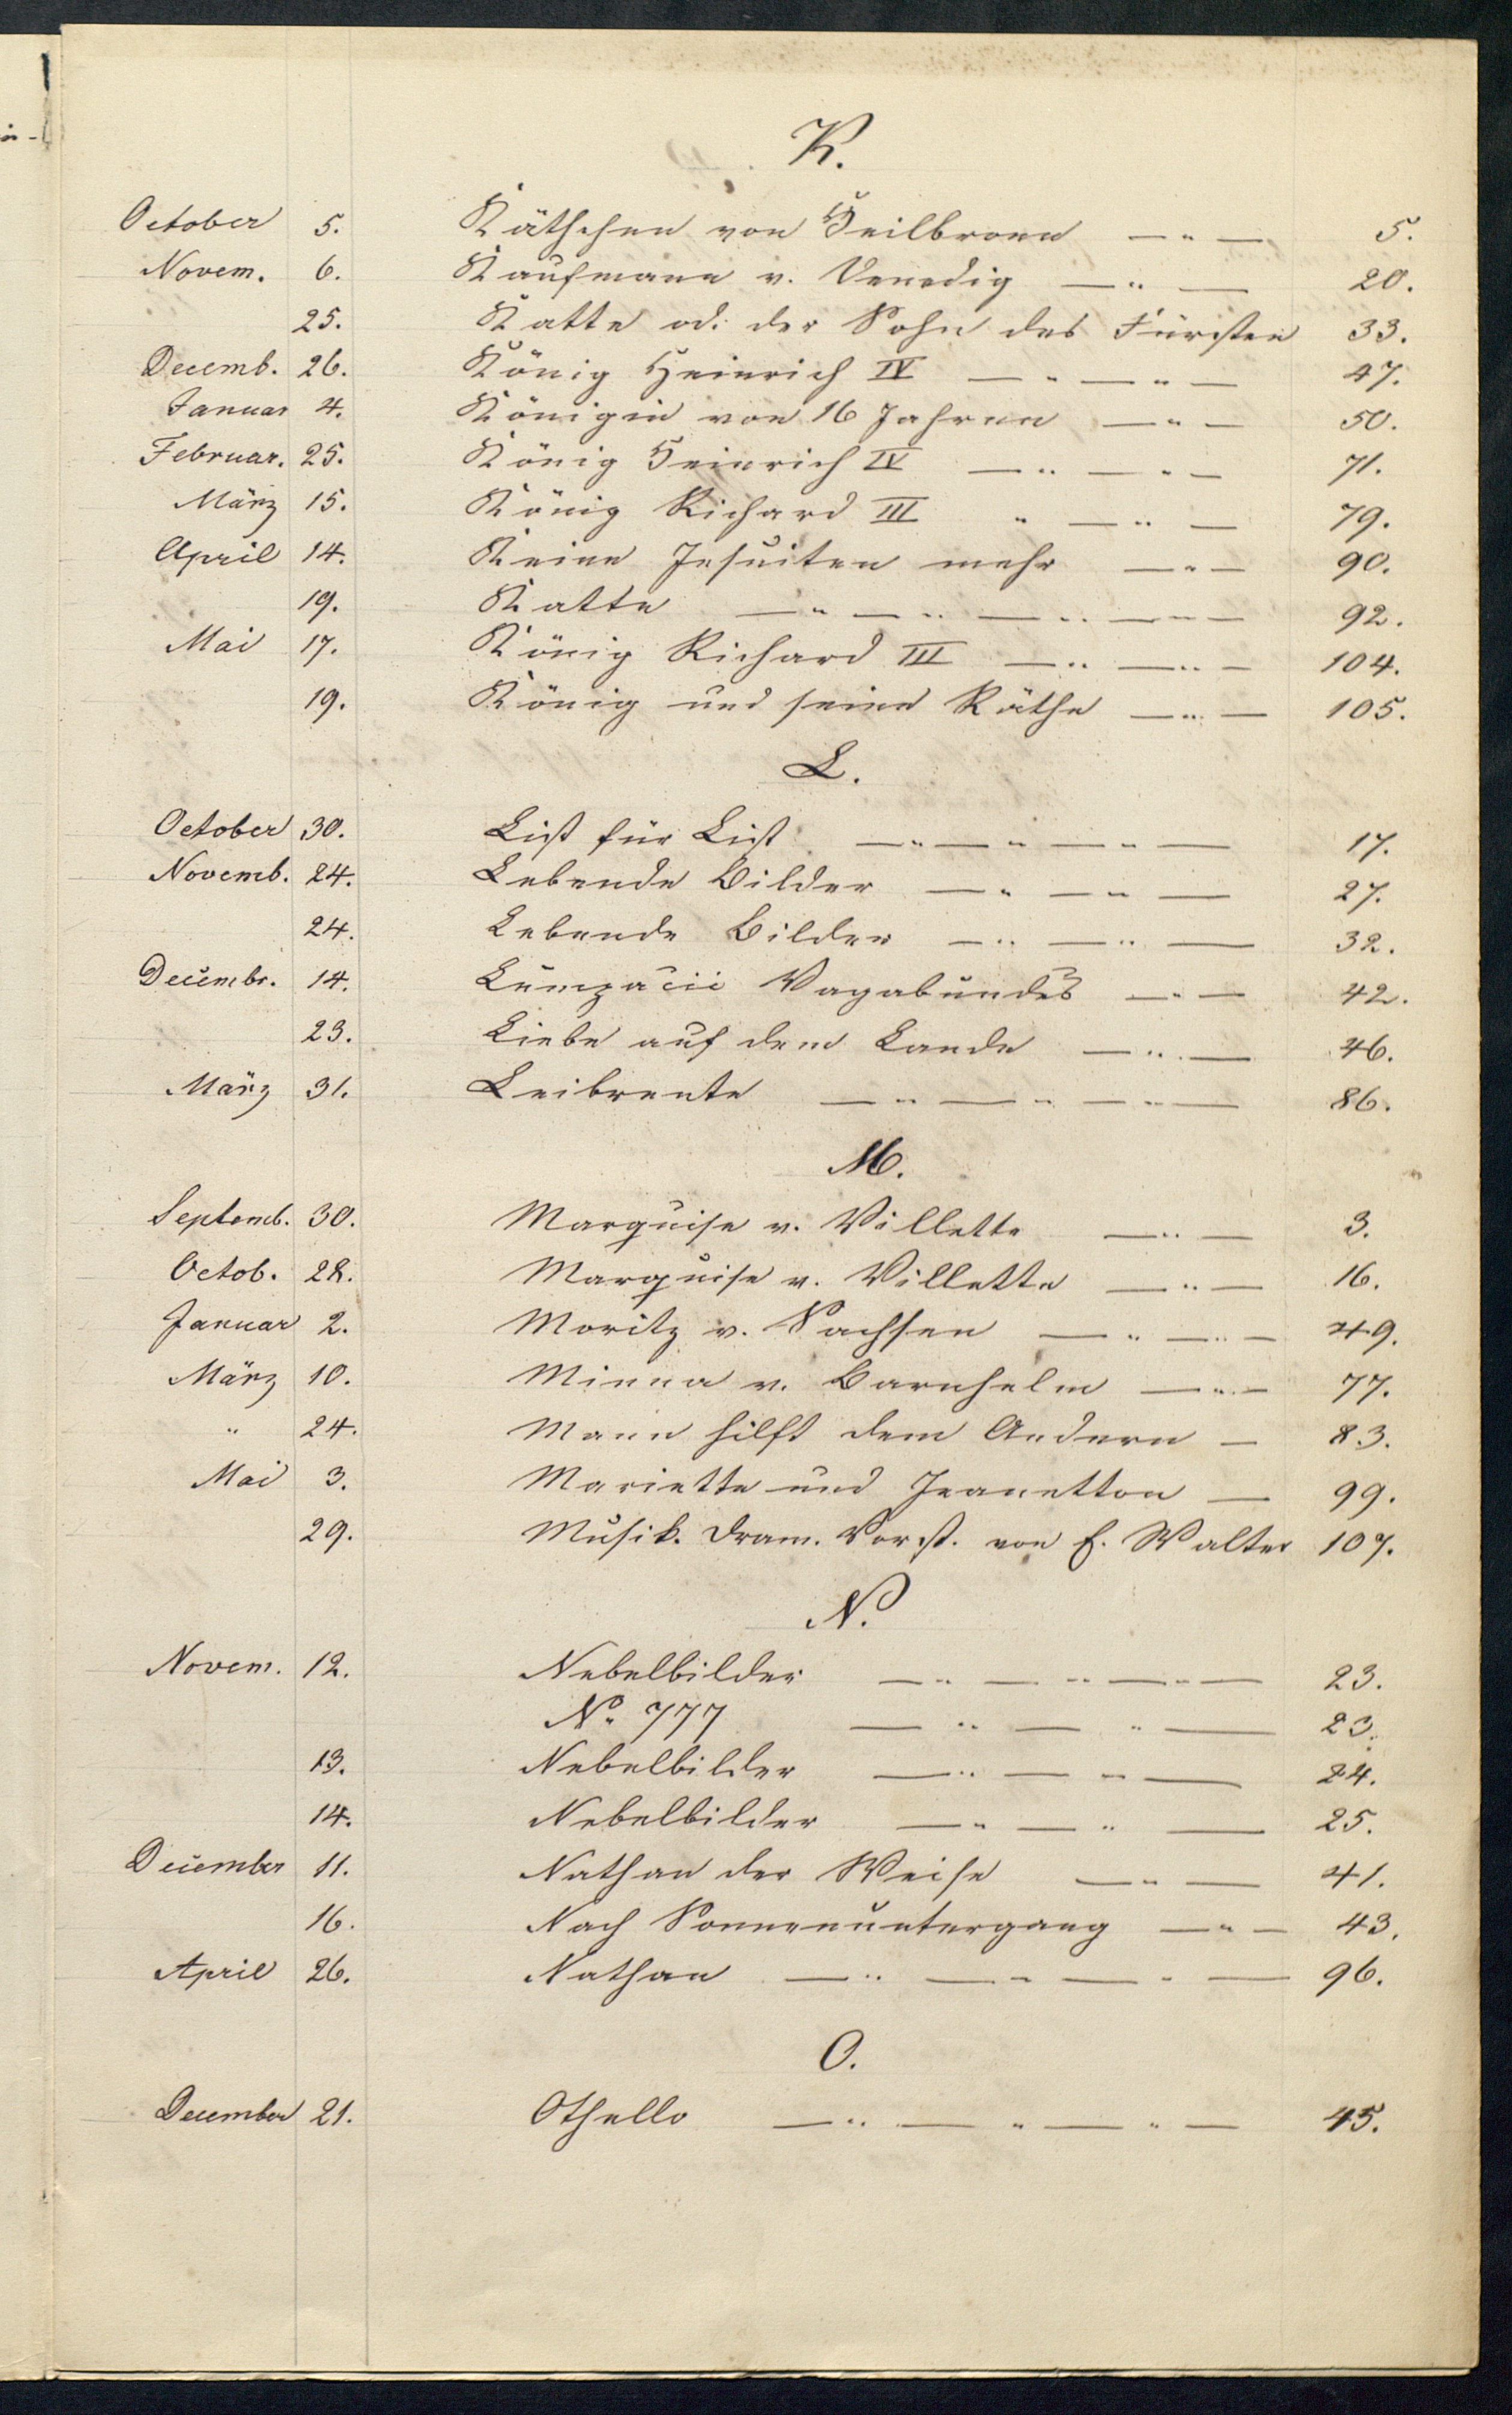 K.
October 5. Käthchen von Heilbronn — " — 5.
Novem. 6. Kaufmann v. Venedig — " — 20.
25. Katte od. der Sohn des Fürsten 33.
Decemb. 26. König Heinrich IV — " — " — 47.
Januar 4. Königin von 16 Jahren — " — 50.
Februar. 25. König Heinrich IV — " — " — 71.
März 15. König Richard III " — " — 79.
April 14. Keine Jesuiten mehr — " — 90.
19. Katte — " — " — " — " — 92.
Mai 17. König Richard III — " — " — 104.
19. König und seine Räthe — " — 105.
L.
October 30. List für List — " — " — " — 17.
Novemb. 24. Lebende Bilder — " — " — 27.
24. Lebende Bilder — " — " — 32.
Decembr. 14. Lumpacii Vagabundus — " — 42.
23. Liebe auf dem Lande — " — 46.
März 31. Leibrente — " — " — " — 86.
M.
Septemb. 30. Marquise v. Villette — " — 3.
Octob. 28. Marquise v. Villette — " — 16.
Januar 2. Moritz v. Sachsen — " — " — 49.
März 10. Minna v. Barnhelm — " — 77.
" 24. Mann hilft dem Andern — 83.
Mai 3. Mariette und Jeanetton — 99.
29. Musik. dram. Vorst. von E. Walter 107.
N.
Novem. 12. Nebelbilder — " — " — " — 23.
No. 777 — " — " — 23.
13. Nebelbilder — " — " — 24.
14. Nebelbilder — " — " — 25.
December 11. Nathan der Weise — " — 41.
16. Nach Sonnenuntergang — " — 43.
April 26. Nathan — " — " — " — 96.
O.
December 21. Othello — " — " — " — 45.